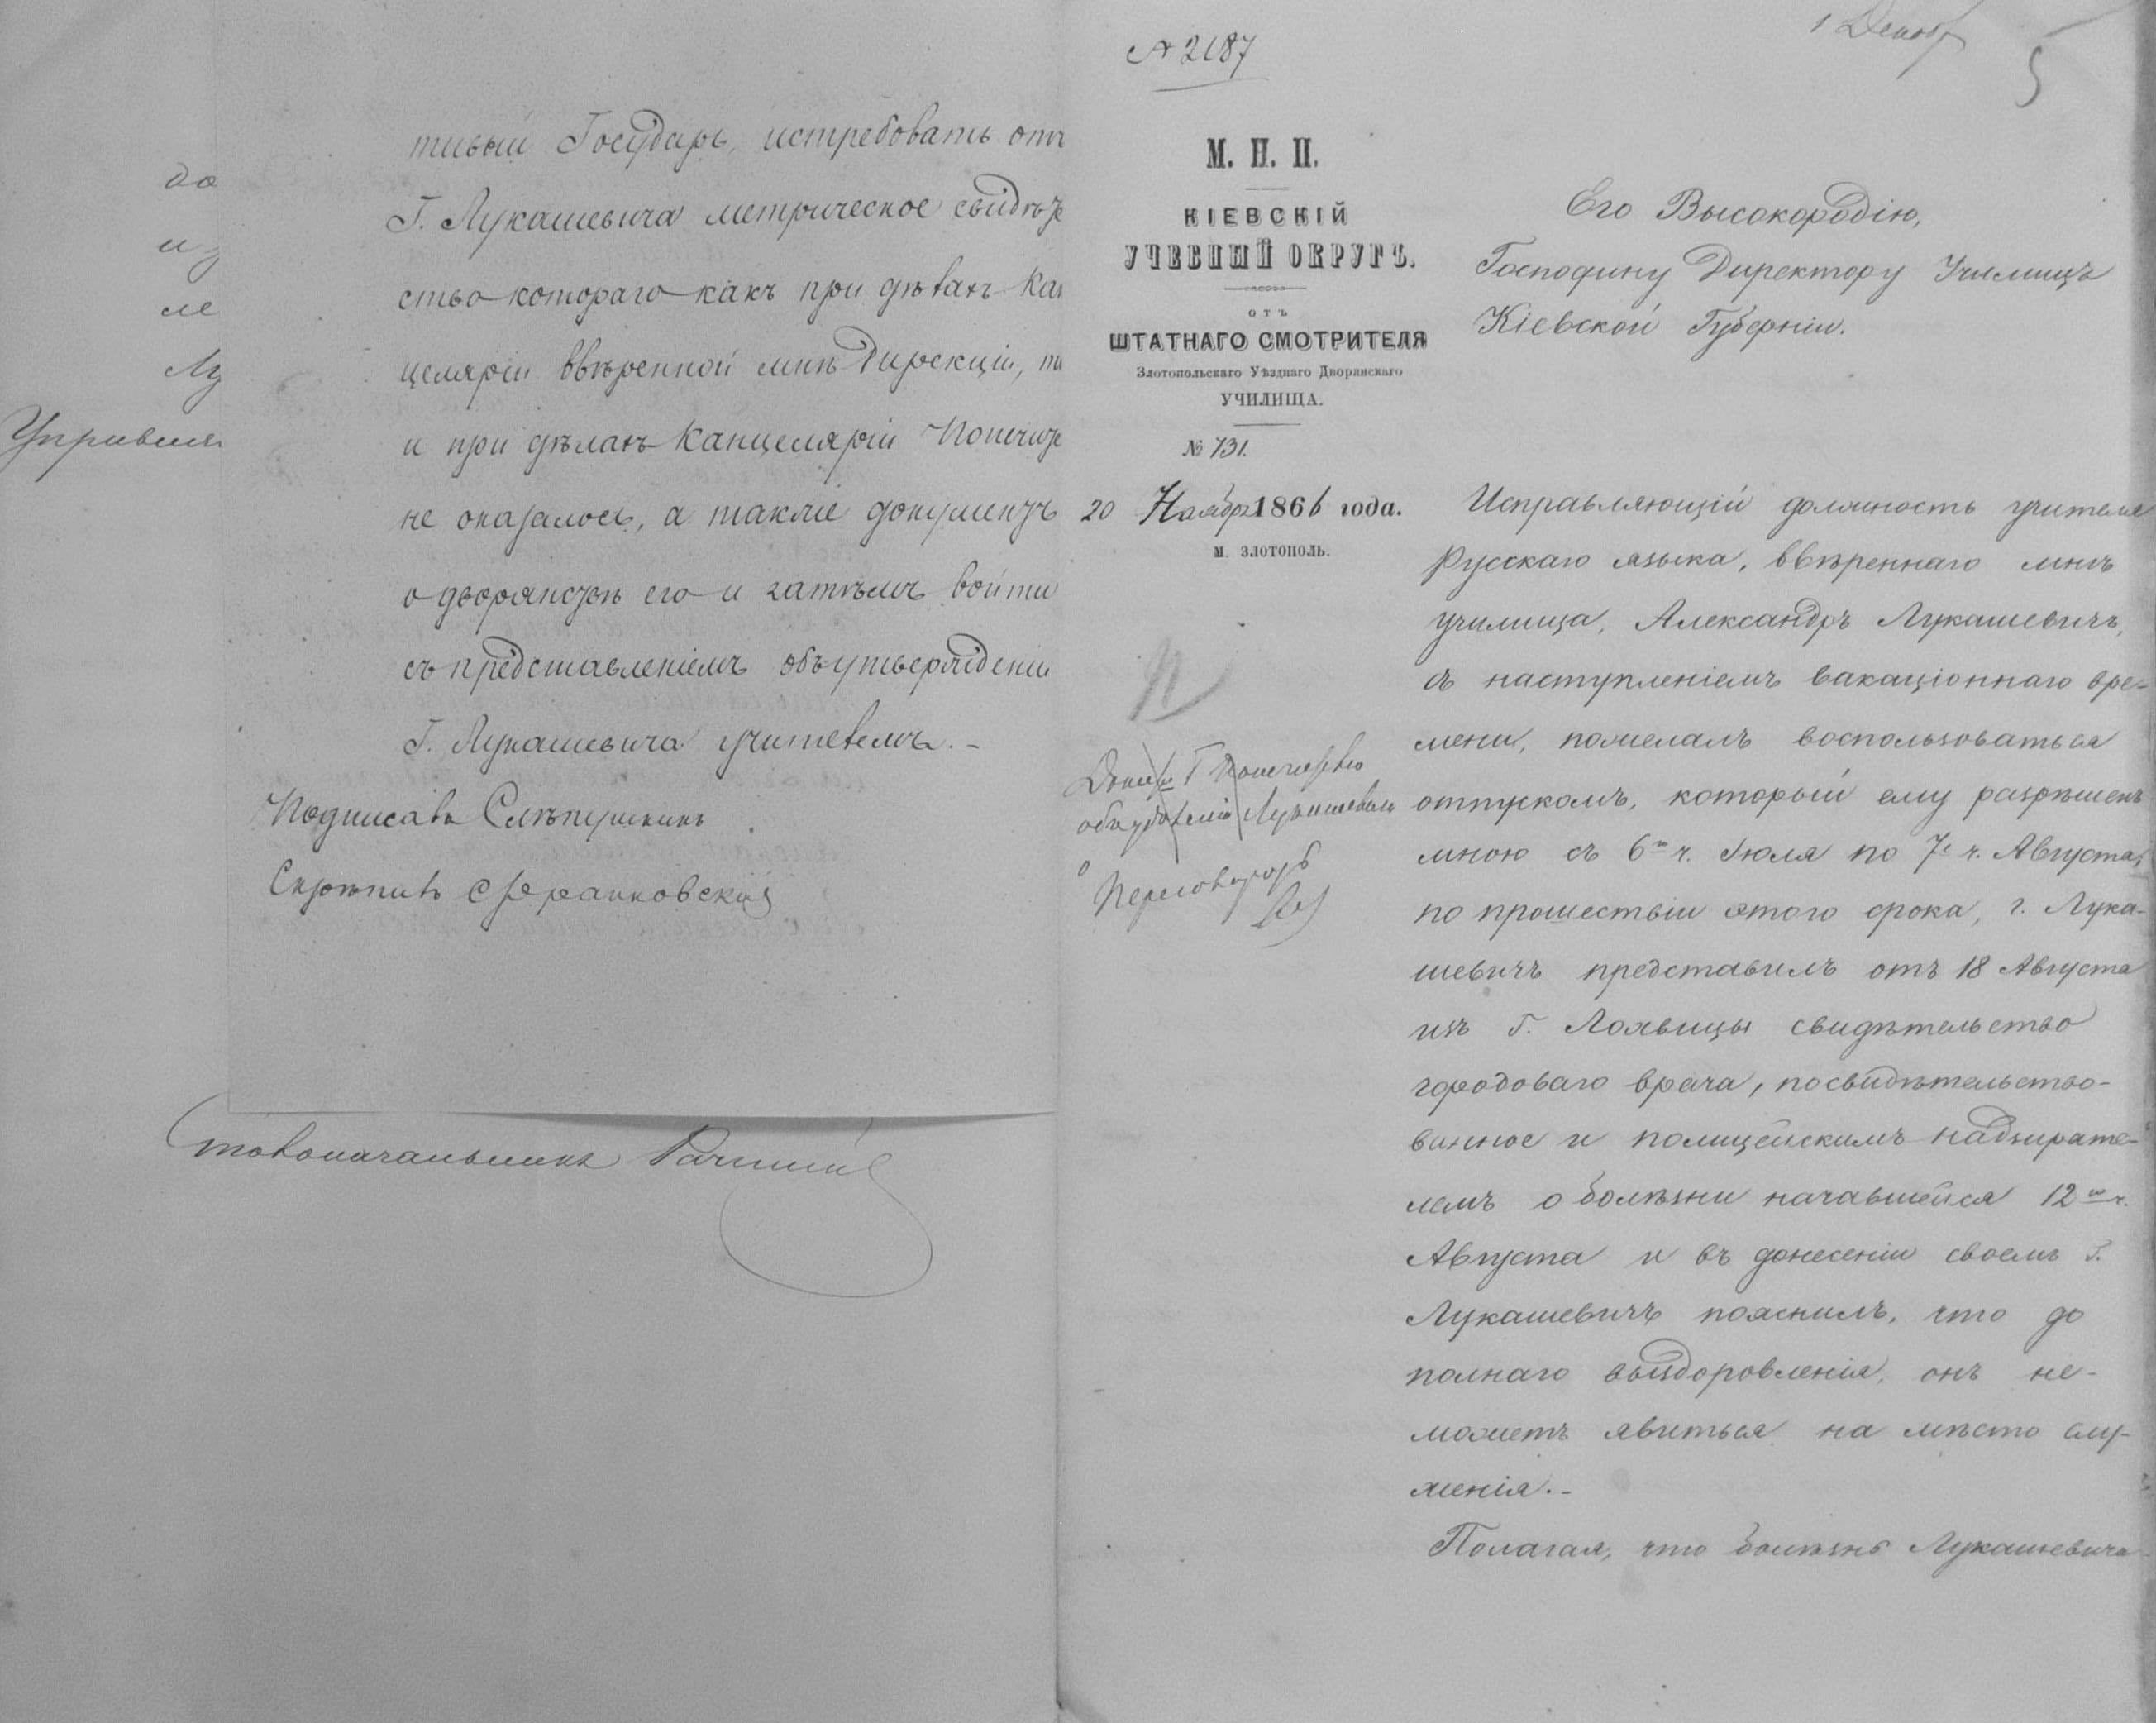 да
из
ле
Лу
Управля
тивый Государь, истребовать отъ
Г. Лукашевича метрическое свидѣтель
ство котораго какъ при дѣлахъ Кан
целяріи ввѣренной мнѣ Дирекціи, та
и при дѣлахъ Канцеляріи Попечите
не оказалось, а также документъ
о дворянствѣ его и затѣмъ войти
съ представленіемъ объ утвержденіи
Г. Лукашевича учителемъ.-
Подписалъ Слѣпушкинъ
Скрѣпилъ
Столоначальникъ
№ 2187
1 Декабр
5
М. Н. П.
КІЕВСКІЙ
УЧЕБНЫЙ ОКРУГЪ.
отъ
ШТАТНАГО СМОТРИТЕЛЯ
Злотопольскаго Уѣзднаго Дворянскаго
УЧИЛИЩА.
№ 731.
20 Ноября 1866 года.
М. ЗЛОТОПОЛЬ.
Г Попечителю
Лукашевича
Переговорить
Его Высокородію,
Господину Директору Училищъ
Кіевской Губерніи.
Исправляющій должность учителя
Русскаго языка, ввѣреннаго мнѣ
училища, Александръ Лукашевичъ,
съ наступленіемъ вакаціоннаго вре-
мени, пожелалъ воспользоваться
отпускомъ, который ему разрѣшенъ
мною съ 6го ч. Іюля по 7е ч. Августа,
по прошествіи этого срока, г. Лука-
шевичъ представилъ отъ 18 Августа
изъ Г. Лохвицы свидѣтельство
городоваго врача, посвидѣтельство-
ванное и полицейскимъ надзирате-
лемъ о болѣзни начавшейся 12го ч.
Августа и въ донесеніи своемъ Г.
Лукашевичъ пояснилъ, что до
полнаго выздоровленія, онъ не-
можетъ явиться на мѣсто слу-
женія.-
Полагая, что болѣзнь Лукашевича